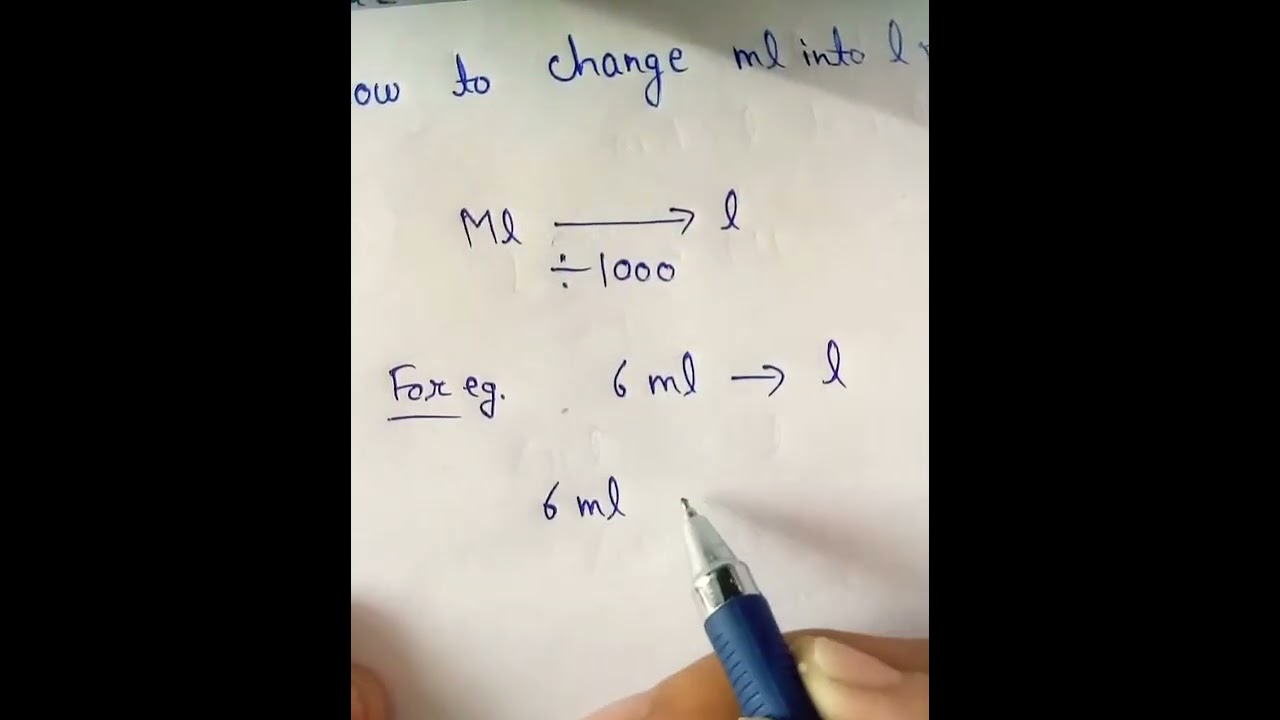 ow to change ml into l
Ml → l
÷1000
For eg. 6 ml → l
6 ml